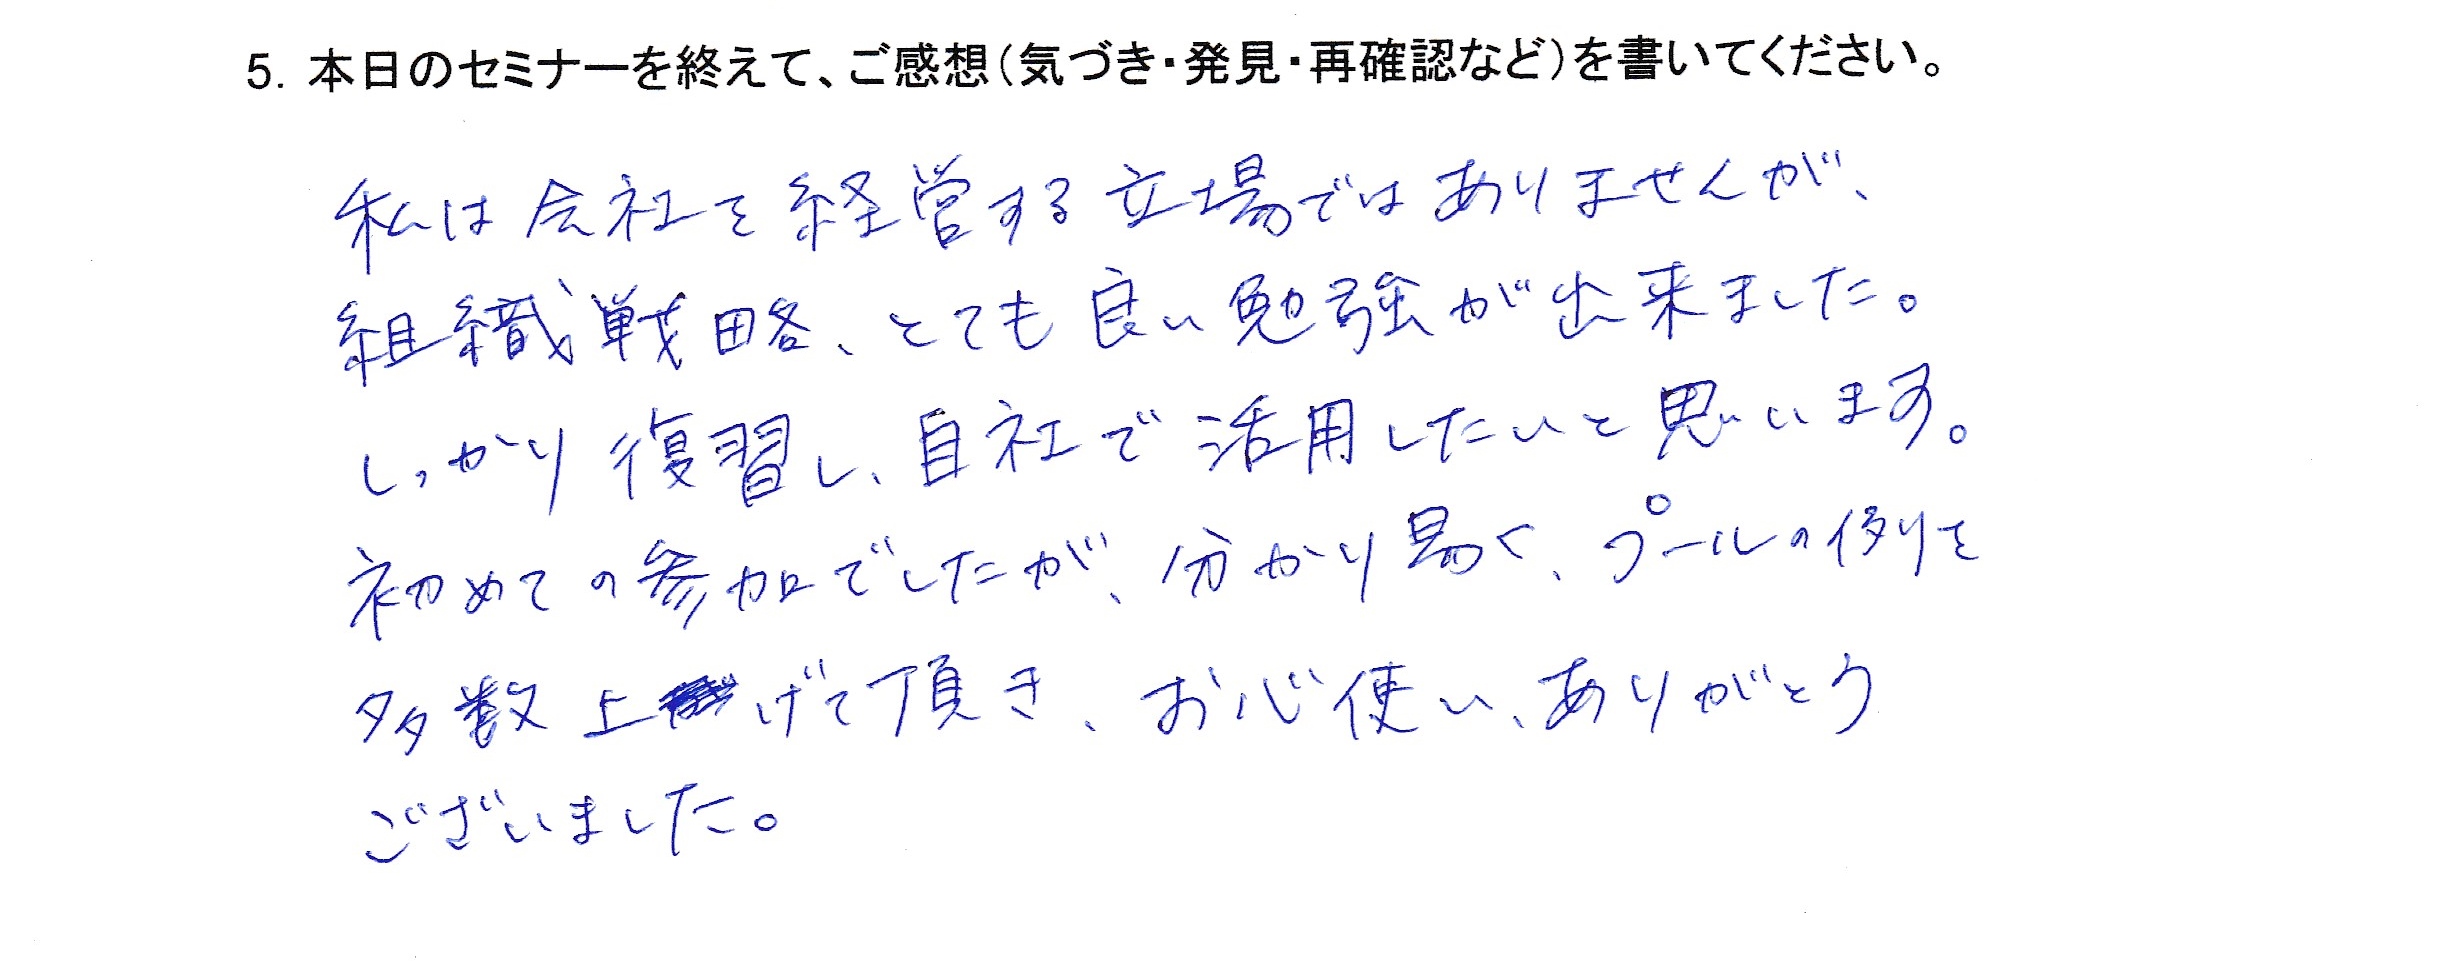 5. 本日のセミナーを終えて、ご感想(気づき・発見・再確認など)を書いてください。
私は会社を経営する立場ではありませんが、
組織戦略、とても良い勉強が出来ました。
しっかり復習し、自社で活用したいと思います。
初めての参加でしたが、分かり易く、プールの例を
多数上げて頂き、お心使い、ありがとう
ございました。